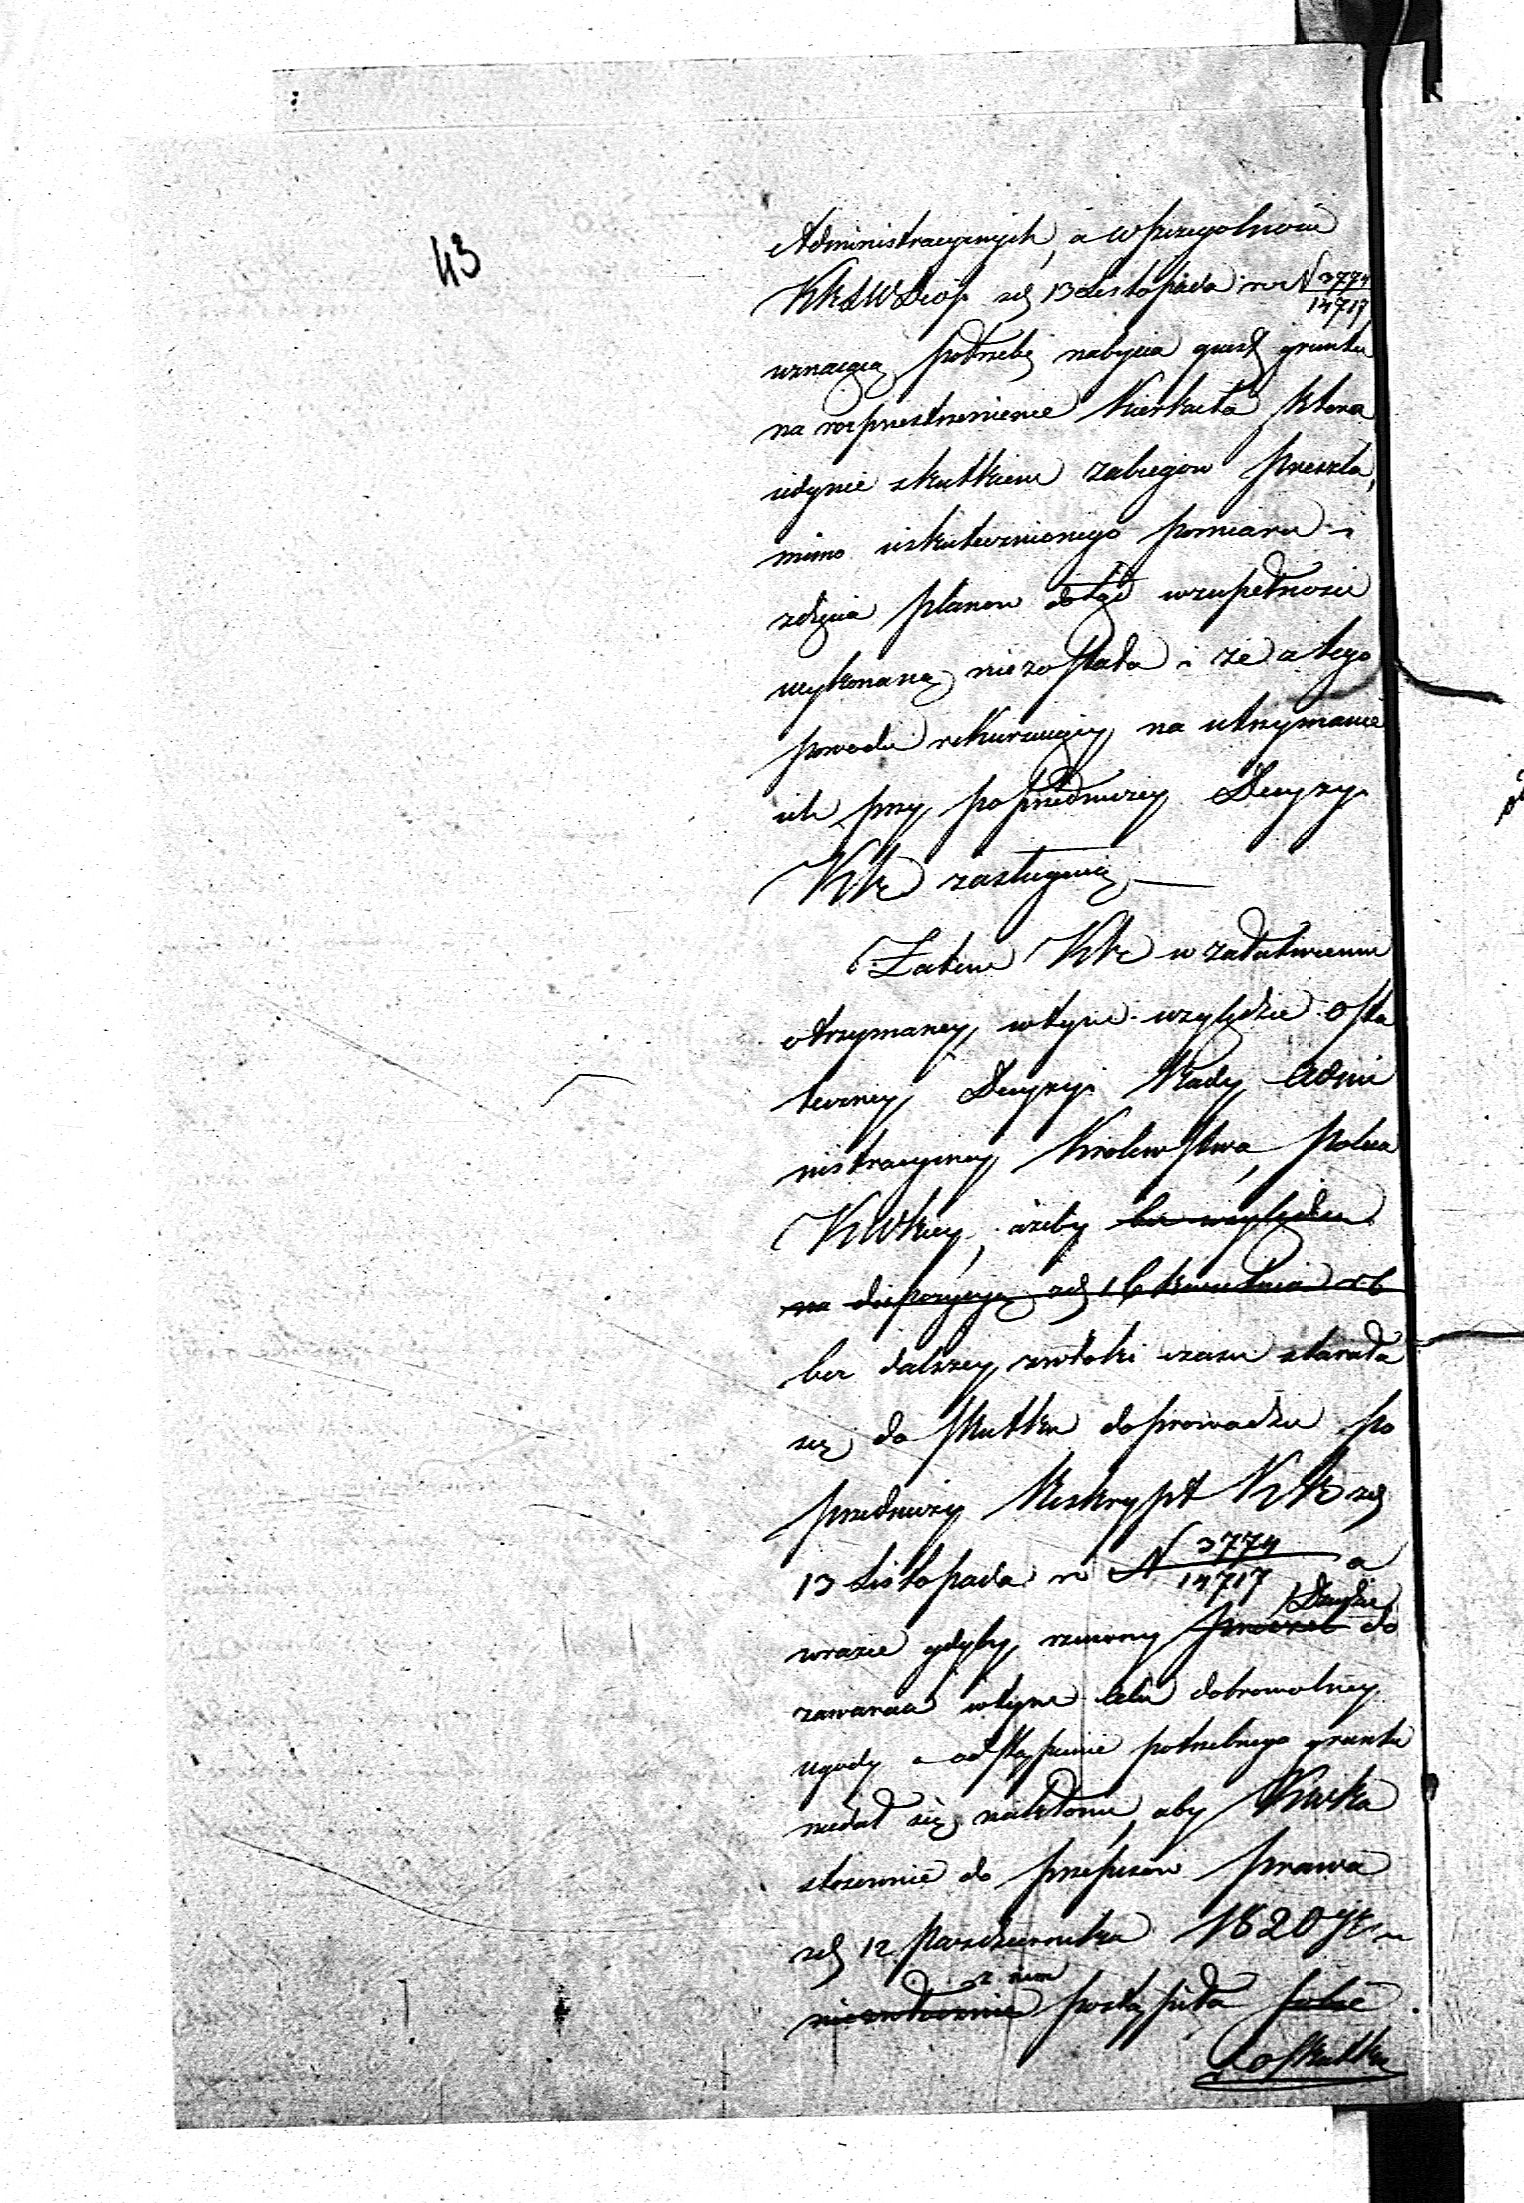 43
Administracyinych, a w szczegolności
KRSWDiop. z d. 13 Listopada r. z. N 3774/14717
uznaiącą potrzebę nabycia quest. gruntu
na rozprzestrzenienie Kierkuta która
iedynie skutkiem zabiegów
mimo uskutecznionego pomiaru i
zdięcia planow dotąd w zupełności
wykonaną niezostała i że z tego
powodu rekuruiący na utrzymanie
ich przy poprzedniczey Decyzyi
KR zasługuią. —
Zatem KR w załatwieniu
otrzymaney w tym względzie osta
teczney Decyzyi Rady Admi
nistracyiney Krolewstwa, poleca
KWskiey, ażeby bez względu
na dispozycyą z d. 16 kwietnia r. b.
bez dalszey zwłoki czasu starała
się do skutku doprowadzić po
przedniczy Reskrypt KR z d.
13 Listopada r. z. N 3774/14717 a
w razie gdyby rzeczony do
zawarcia w tym celu dobrowolney
ugody o odstąpienie potrzebnego gruntu
niedał się nakłonić, aby KWska
stosownie do przepisów prawa
z d. 12 Pazdziernika 1820
z nim
niezwłocznie postąpiła sobie
do skutku